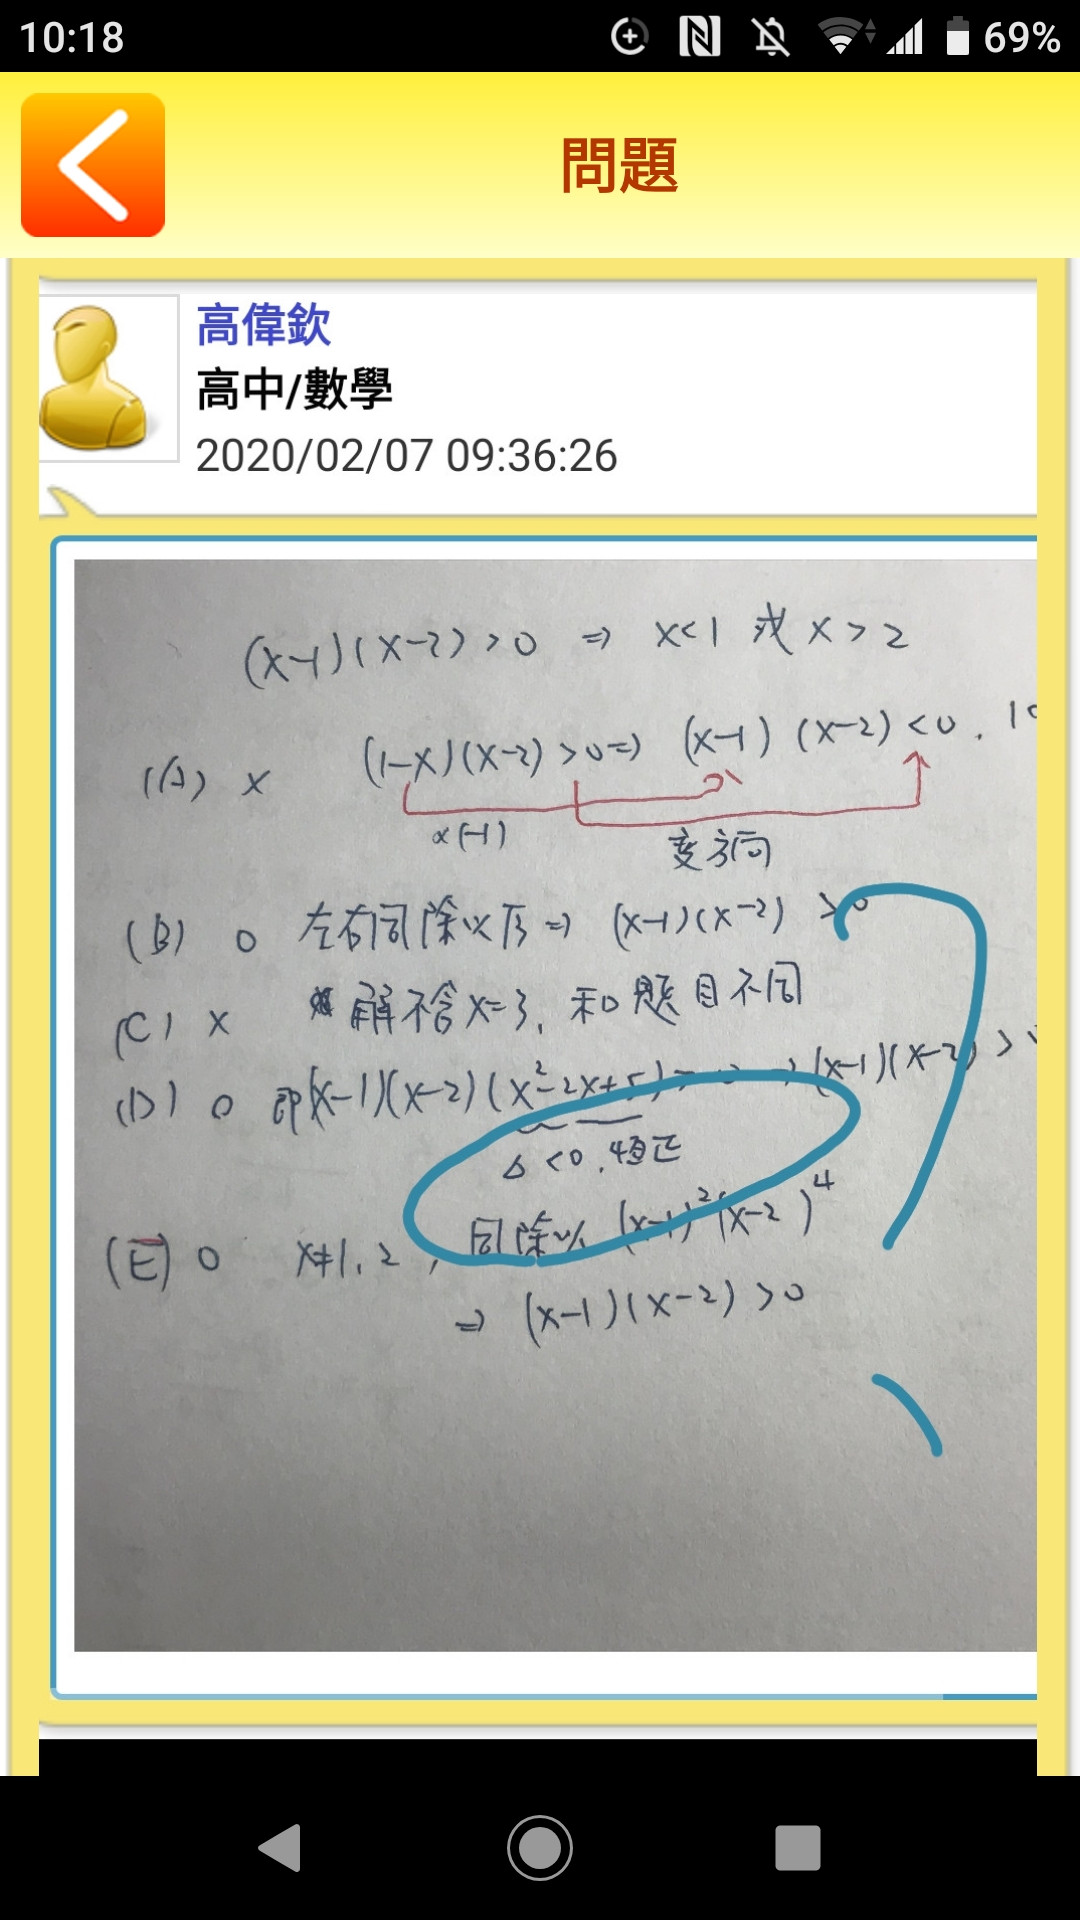 10:18 69%
問題
高偉欽
高中/數學
2020/02/07 09:36:26
(x-1)(x-2)>0 ⇒ x<1 或 x>2
(A) × (1-x)(x-2)>0⇒ (x-1)(x-2)<0.
×(-1) 变方向
(B) ○ 左右同除以 ⇒ (x-1)(x-2)>0
(C) × 解不含x=3, 和題目不同
(D) ○ 即(x-1)(x-2)(x²-2x+5)>0 ⇒ (x-1)(x-2)>
△<0,恒正
(E) ○ x≠1,2, 同除以 (x-1)²(x-2)⁴
⇒ (x-1)(x-2)>0